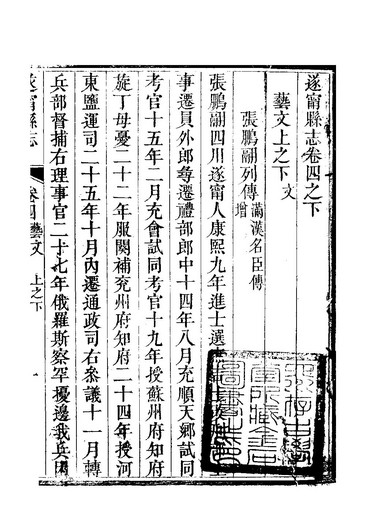 遂甯縣志卷四之下
藝文上之下 文
張鵬翮列傳 增 滿漢名臣傳
張鵬翮四川遂甯人康熙九年進士選
事遷員外郎尋遷禮部郎中十四年八月充順天鄉試同
考官十五年二月充會試同考官十九年授蘇州府知府
旋丁母憂二十二年服闋補兖州府知府二十四年授河
東鹽運司二十五年十月內遷通政司右參議十一月轉
兵部督捕右理事官二十七年俄羅斯察罕擾邊我兵困
遂甯縣志 卷四藝文 上之下